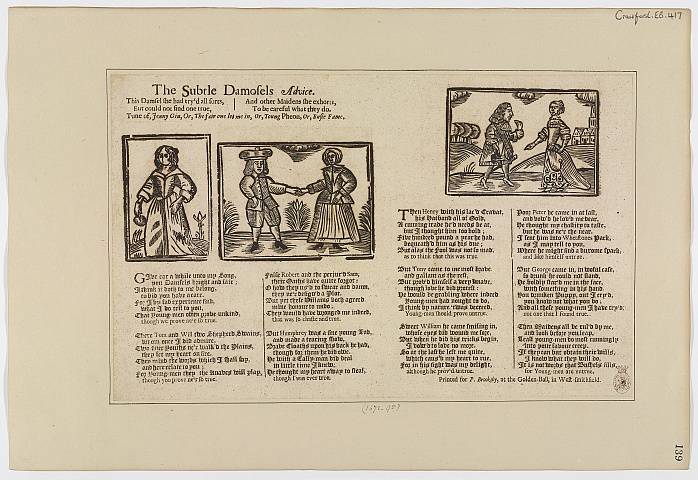 Crawford. EB. 417
The Subtle Damosels Advice.
This Damsel she had try'd all sorts,
But could not find one true,
And other Maidens she exhorts,
To be careful what they do.
Tune of, Jenny Gin, Or, The fair one let me in, Or, Young Pheon, Or, Busie Fame.
Give ear a while unto my Song,
you Damsels bright and fair;
I think it doth to me belong,
to bid you have a care.
For I by sad experience find,
what I do tell to you,
That Young-men often prove unkind,
though we prove ne'r so true.
There Tom and Will two Shepherd Swains,
whom once I did admire,
Two truer Youths ne'r walk'd the Plains,
they set my heart on fire.
Then mind the words which I shall say,
and here relate to you;
For Young-men they the knaves will play,
though you prove ne'r so true.
False Robert and the perjur'd Sam,
their Oaths have quite forgot;
O how they us'd to swear and damn,
they ne'r design'd a Plot.
But yet these Villains both agreed
mine honour to undo;
They would have wronged me indeed,
that was so chaste and true.
But Humphrey was a fine young Lad,
and made a roaring show,
Brave Cloaths upon his back he had,
though for them he did owe.
He with a Cully-man did deal
in little time I knew;
He thought my heart away to steal,
though I was ever true.
Then Henry with his lac'd Cravat,
his Hatband all of Gold,
A cunning trade he'd needs be at,
but I thought him too bold;
Five hundred pound a year he had,
bequeath'd him as his due;
But alas the Fool was not so mad,
as to think that this was true.
But Tony came to me most brave
and gallant as the rest,
But prov'd himself a very knave,
though love he did protest:
He would be grabling where indeed
Young-men had nought to do,
I think by nature 'twas decreed,
Young-men should prove untrue.
Sweet William he came smiling in,
whose eyes did wound me sore,
But when he did his tricks begin,
I vow'd to love no more.
So at the last he left me quite,
which caused my heart to rue,
For in his sight was my delight,
although he prov'd untrue.
Poor Peter he came in at last,
and vow'd he lov'd me dear,
He thought my chastity to taste,
but he was ne'r the near.
I sent him into Whetstones Park,
as I may tell to you,
Where he might find a buxome spark,
and like himself untrue.
But George came in, in woful case,
so drunk he could not stand,
He boldly star'd me in the face,
with something in his hand.
You drunken Puppy, out I cry'd,
you know not what you do:
And all these young-men I have try'd;
not one that I found true.
Then Maidens all be rul'd by me,
and look before you leap,
Least young-men do most cunningly
into your favour creep.
If they can but obtain their wills,
I know what they will do,
It is not words that Bushels fills,
for Young-men are untrue.
Printed for P. Brooksby, at the Golden-Ball, in West-smithfield.
139